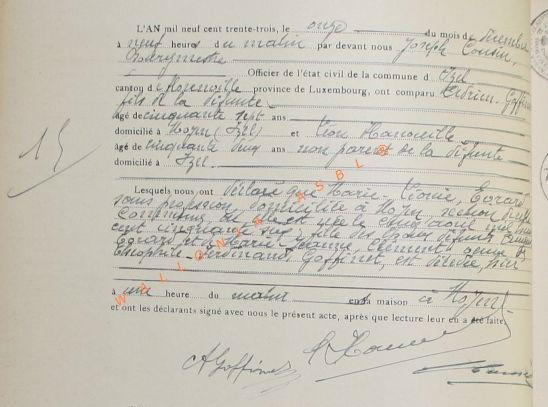 L'AN mil neuf cent trente-trois, le onze du mois de décembre
à neuf heures du matin par devant nous Joseph Cousin,
Bourgmestre
Officier de l'état civil de la commune d'Izel
canton d province de Luxembourg, ont comparu Goffinet
fils de la défunte
âgé de cinquante sept ans
domicilié à Moyen (Izel) et Léon
âgé de cinquante cinq ans non parent de la défunte
domicilié à Izel
15
Lesquels nous ont déclaré que Marie Léonie, Evrard
sans profession, domiciliée à Moyen, section de
commune, où elle est née le août mil
cent cinquante six, fille des époux défunts
Evrard, et Marie Jeanne, Clément, veuve de
Théophile Ferdinand, Goffinet, est décédée, hier
à une heure du matin en sa maison à Moyen
et ont les déclarants signé avec nous le présent acte, après que lecture leur en a été faite.
A Goffinet
WALLONIA ASBL